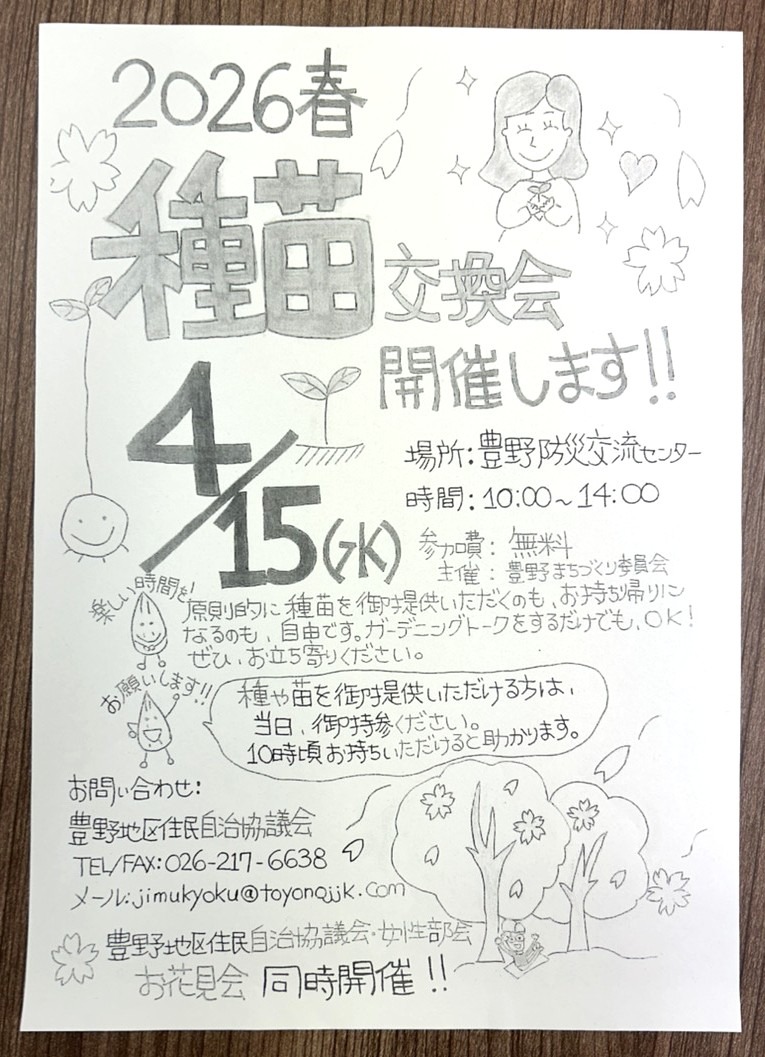 2026春
種苗
交換会
開催します!!
4/15(水)
場所:豊野防災交流センター
時間:10:00~14:00
参加費:無料
主催:豊野まちづくり委員会
楽しい時間を!
原則的に種苗を御提供いただくのも、お持ち帰りに
なるのも、自由です。ガーデニングトークをするだけでも、OK!
ぜひ、お立ち寄りください。
お願いします!!
種や苗を御提供いただける方は、
当日、御持参ください。
10時頃お持ちいただけると助かります。
お問い合わせ:
豊野地区住民自治協議会
TEL/FAX:026-217-6638
メール:jimukyoku@toyonojjk.com
豊野地区住民自治協議会・女性部会
お花見会 同時開催!!